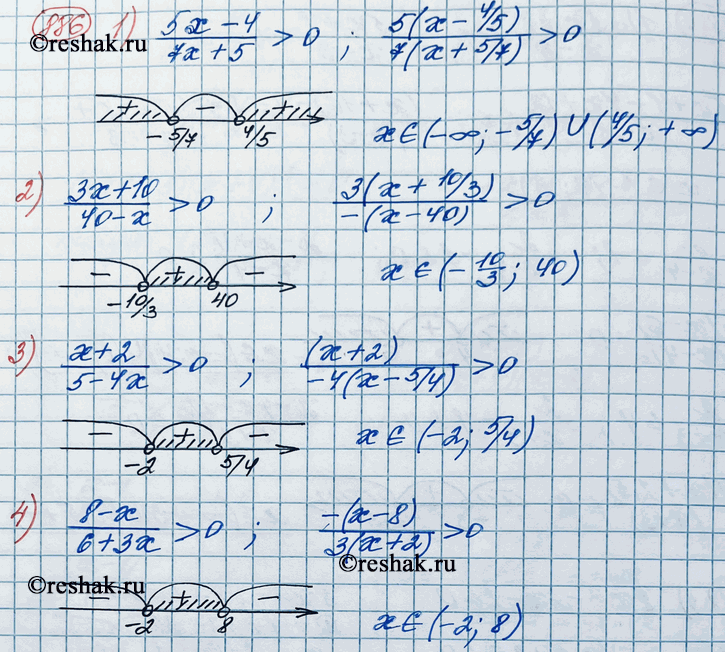 886 1) (5x-4)/(7x+5) > 0 ; 5(x-4/5)/7(x+5/7) > 0
©reshak.ru ©reshak.ru
+ - +
-5/7 4/5 x∈(-∞; -5/7) ∪ (4/5; +∞)
2) (3x+10)/(40-x) > 0 ; 3(x+10/3)/-(x-40) > 0
- + -
-10/3 40 x∈(-10/3; 40)
3) (x+2)/(5-4x) > 0 ; (x+2)/-4(x-5/4) > 0
- + -
-2 5/4 x∈(-2; 5/4)
4) (8-x)/(6+3x) > 0 ; -(x-8)/3(x+2) > 0
©reshak.ru ©reshak.ru
- + -
-2 8 x∈(-2; 8)